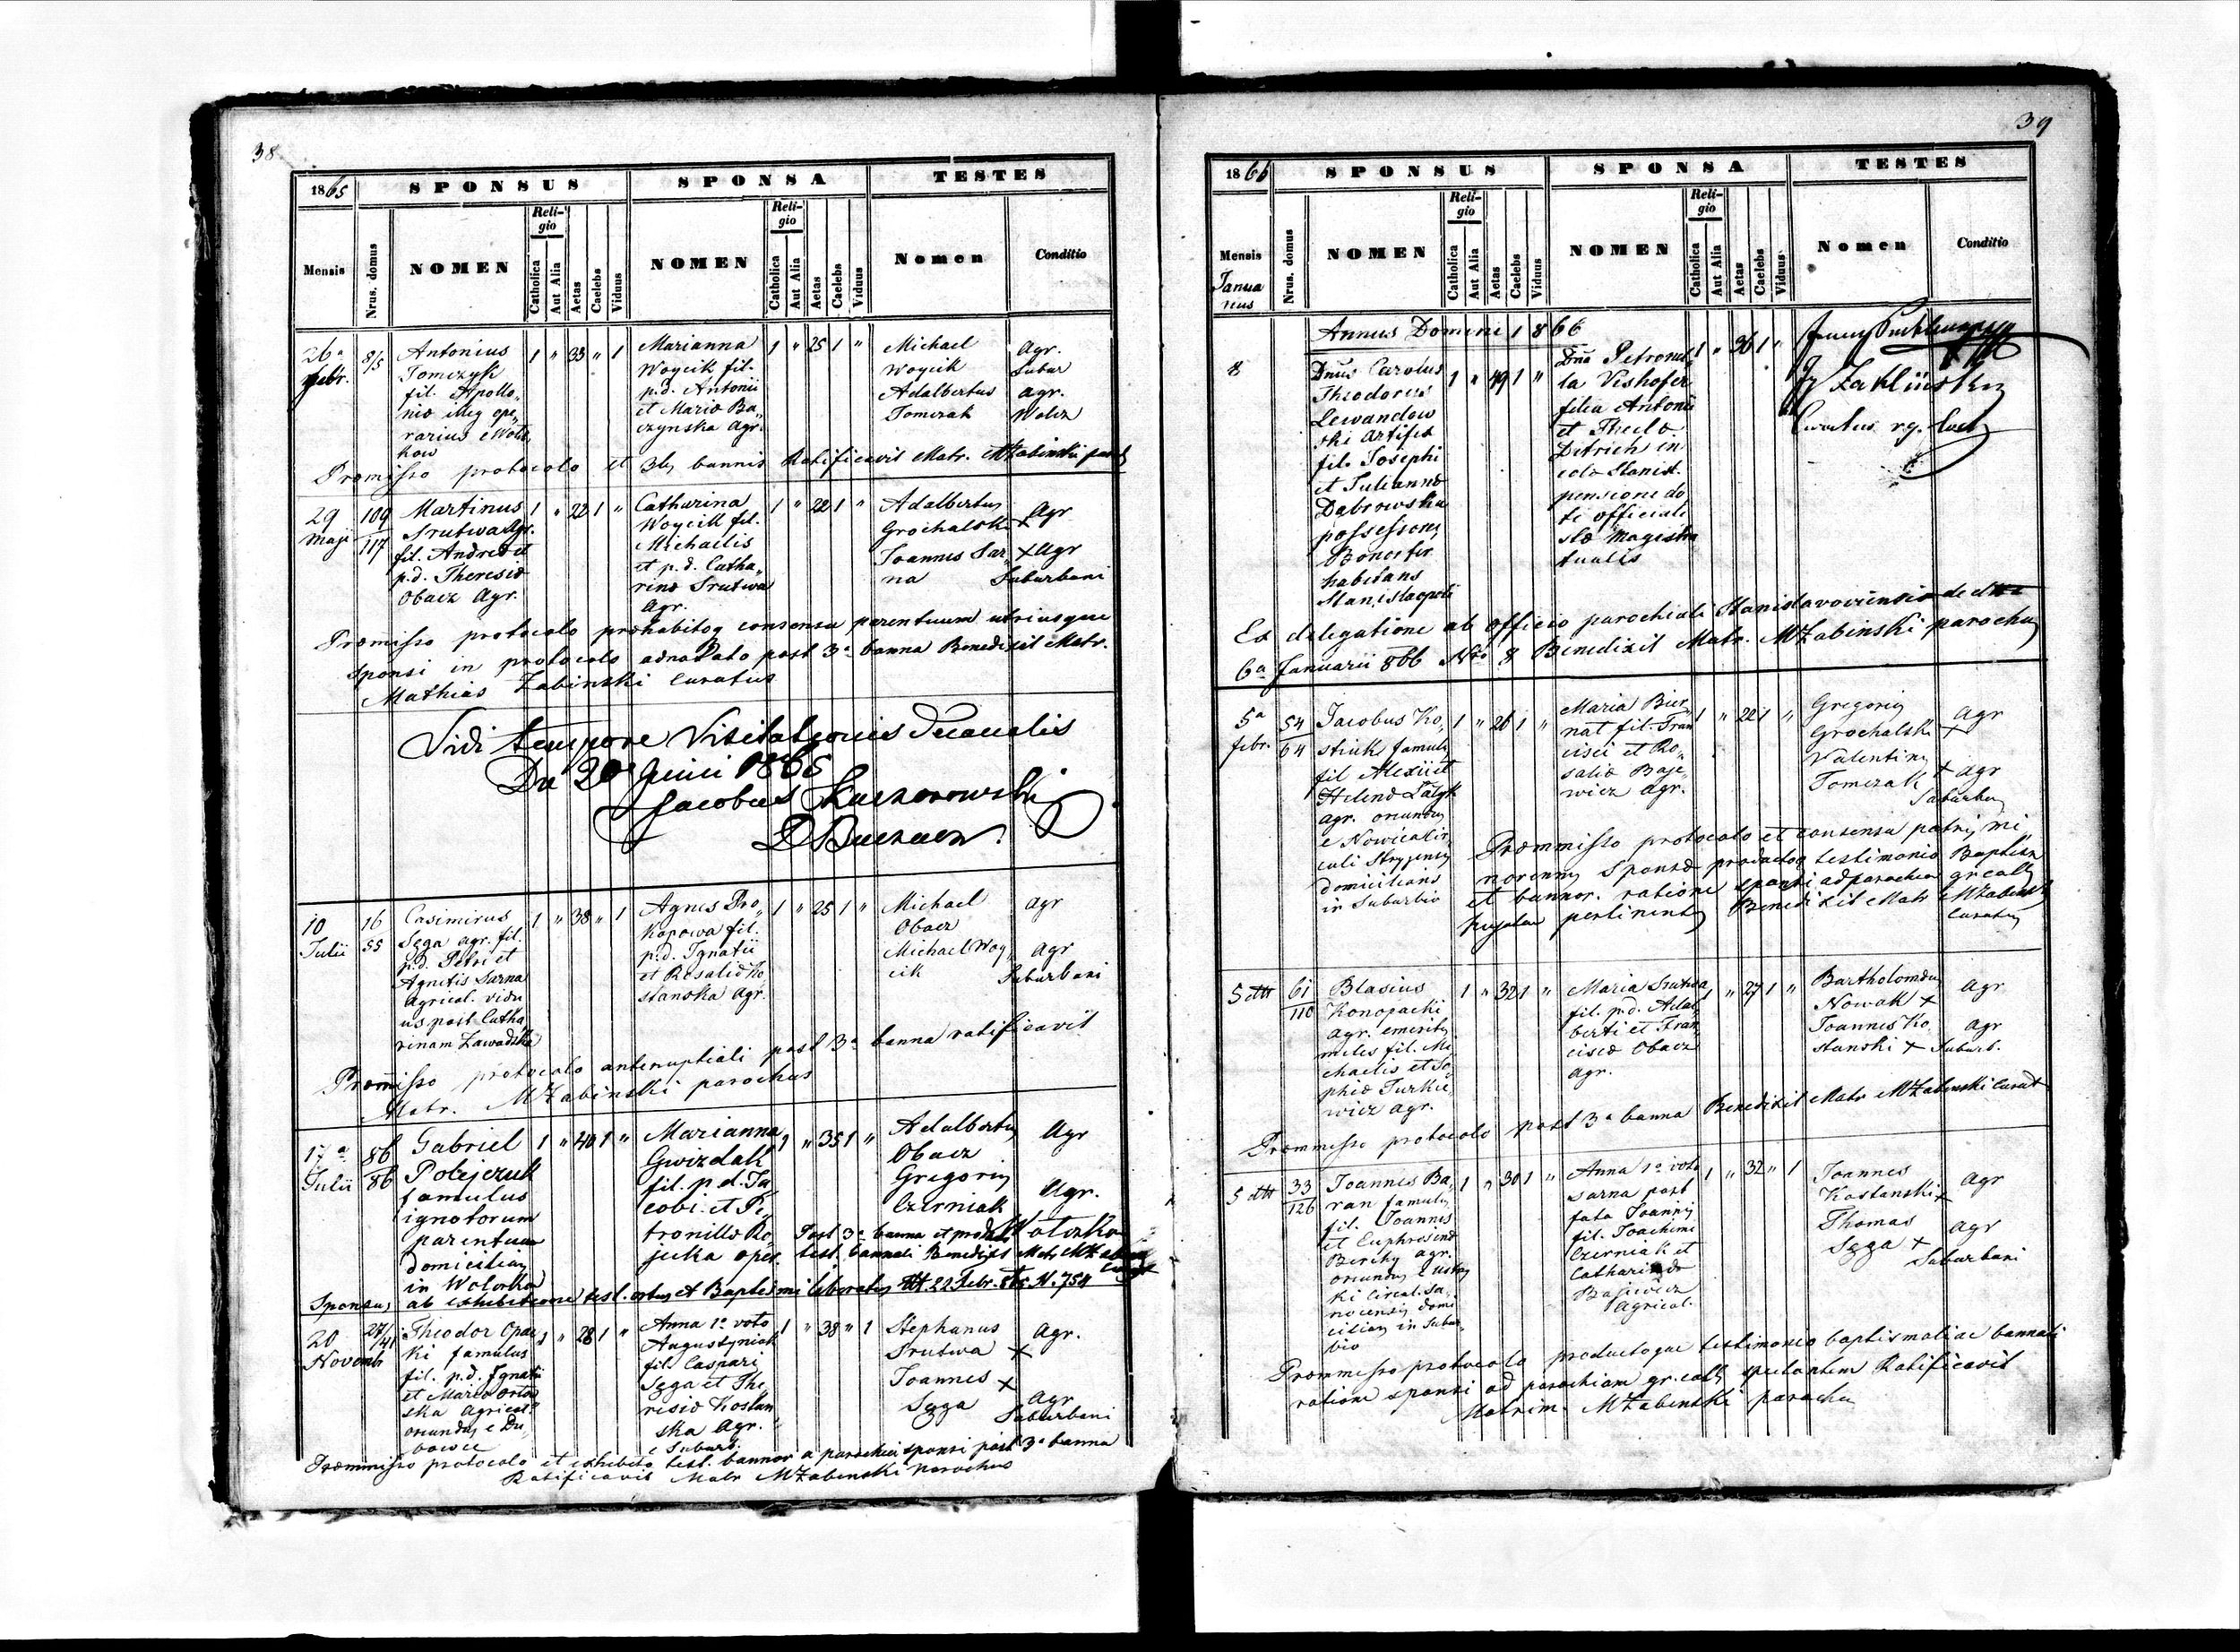 38
1865
SPONSUS
SPONSA
TESTES
Mensis
Nrus. domus
NOMEN
Religio
Catholica
Aut Alia
Aetas
Caelebs
Viduus
NOMEN
Religio
Catholica
Aut Alia
Aetas
Caelebs
Viduus
Nomen
Conditio
26a
febr.
8/5
Antonius
Tomczyk
fil. Apollo„
niæ illeg ope„
rarius e Woło„
ków
1 " 33 " 1
Marianna
Woycik fil.
p.d. Antonii
et Mariæ Ba„
czynska Agr.
1 " 25 1 "
Michael
Woycik
Adalbertus
Tomczak
Agr.
Subur
agr.
Præmisso protocolo et 3bus bannis Ratificavit Matr. MŻabinski
29
Maji
109
117
Martinus
Srutwa Agr.
fil. Andreæ et
p.d. Theresiæ
Obacz Agr.
1 " 22 1 "
Catharina
Woycik fil.
Michaelis
et p.d. Catha„
rinæ Srutwa
Agr.
1 " 22 1 "
Adalbertus
Grochalski
Joannes Sar„
na
+ Agr
+ Agr
Suburbani
Præmisso protocolo præhabitoq consensu parentuum utriusque
sponsi in protocolo adnotato post 3a banna Benedixit Matr.
Mathias Żabinski Curatus
Vidi tempore Visitationis Decanalis
Junii 1865
Jacobus
10
Julii
16
55
Casimirus
Sęga agr. fil.
p.d. Petri et
Agnetis Sarna
Agricol. vidu
us post Catha
rinam Zawadska
1 " 38 " 1
Agnes Pro„
kopowa fil.
p.d. Ignatii
et Rosaliæ Ko
stanska Agr.
1 " 25 1 "
Michael
Obacz
Michael Woy„
cik
Agr
Agr
Suburbani
Præmisso protocolo antenuptiali post 3a banna ratificavit
Matr. MŻabinski parochus
17a
Julii
86
86
Gabriel
famulus
ignotorum
parentum
domicilians
in Wołoska
1 " 40 1 "
Marianna
Gwizdak
fil. p.d. Ja
cobi et Pe„
tronillæ
1 " 35 1 "
Adalbertus
Obacz
Gregorius
Czerniak
Agr
Agr.
Post 3a banna et
test. bannali Benedixit Matr
Sponsus ab exhibitione test. ortus et Baptismi liberatus 22 Febr. 865 N. 754
20
Novemb
27/41
Theodor Opar
ki famulus
fil. p.d. Ignatii
et Mariæ
ska Agricol.
oriundus e Du„
bowce
1 " 28 1 "
Anna 1o voto
Augustyniak
fil. Caspari
Sęga et The
resiæ Kostan
ska Agr.
e Suburb.
1 " 38 " 1
Stephanus
Srutwa +
Joannes +
Sęga
Agr.
Agr
Suburbani
Præmmisso protocolo et exhibito test. bannor a parochia sponsi post 3a banna
Ratificavit Matr MŻabinski parochus
39
1866
SPONSUS
SPONSA
TESTES
Mensis
Janua
rius
Nrus. domus
NOMEN
Religio
Catholica
Aut Alia
Aetas
Caelebs
Viduus
NOMEN
Religio
Catholica
Aut Alia
Aetas
Caelebs
Viduus
Nomen
Conditio
Annus Domini 1866
8
Dnus Carolus
Theodorus
Lewandow
ski Artifex
fil. Josephi
et Julianna
Dąbrowska
possessorum
habitans
Stanislaopoli
1 " 49 1 "
Dna Petronel
la Vishofer
filia Antonii
et Theclæ
Ditrich in
cola Stanisl.
pensione do
ti officiali
Magistra
tualis
1 " 36 1 "
Ex delegatione ab officio parochiali Stanislavoviensis de dtto
6a Januarii 866 Nro 8 Benedixit Matr. MŻabinski parochus
5a
febr.
54
64
Jacobus Ko„
stiuk famul.
fil Alexii et
Helenæ
agr. oriundus
e Nowica cir
culi Stryjensis
domicilians
in Suburbio
1 " 26 1 "
Maria Bier„
nat fil. Fran
cisci et Ro„
saliæ Baje„
wicz agr.
1 " 22 1 "
Gregorius
Grochalski +
Valentinus
Tomczak +
Agr
Agr
Suburbani
Præmmisso protocolo et consensu patris mi„
norennis Sponsæ productoq testimonio Baptism
et bannor. ratione sponsi ad parochiam gr cath
pertinentis Benedixit Matr MŻabinski
Curatus
5 dtto
61
110
Blasius
Konopacki
agr. emeritus
miles fil. Mi
chaelis et So„
phiæ Turkie„
wicz agr.
1 " 32 1 "
Maria Srutwa
fil. p.d. Adal
berti et Fran„
ciscæ Obacz
Agr.
1 " 27 1 "
Bartholomæus
Nowak +
Joannes Ko„
stanski +
Agr
Agr
Suburb.
Præmmisso protocolo post 3a banna Benedixit Matr MŻabinski Curat
5 dtto
33
126
Joannes Ba„
ran famulus
fil. Joannis
et Euphrosinæ
agr.
oriundus e
ki Circul. Sa„
nocensis domi
cilians in Subur
bio
1 " 30 1 "
Anna 1o voto
Sarna post
fata Joannis
fil. Joachimi
Czerniak et
Catharinæ
Bajewicz
Agricol.
1 " 32 " 1
Joannes
Kostanski +
Thomas
Sęga +
Agr
Agr
Suburbani
Præmmisso protocolo productoque testimonio baptismali ac bannali
ratione sponsi ad parochiam gr. cath spectantem Ratificavit
Matrim. MŻabinski parochus